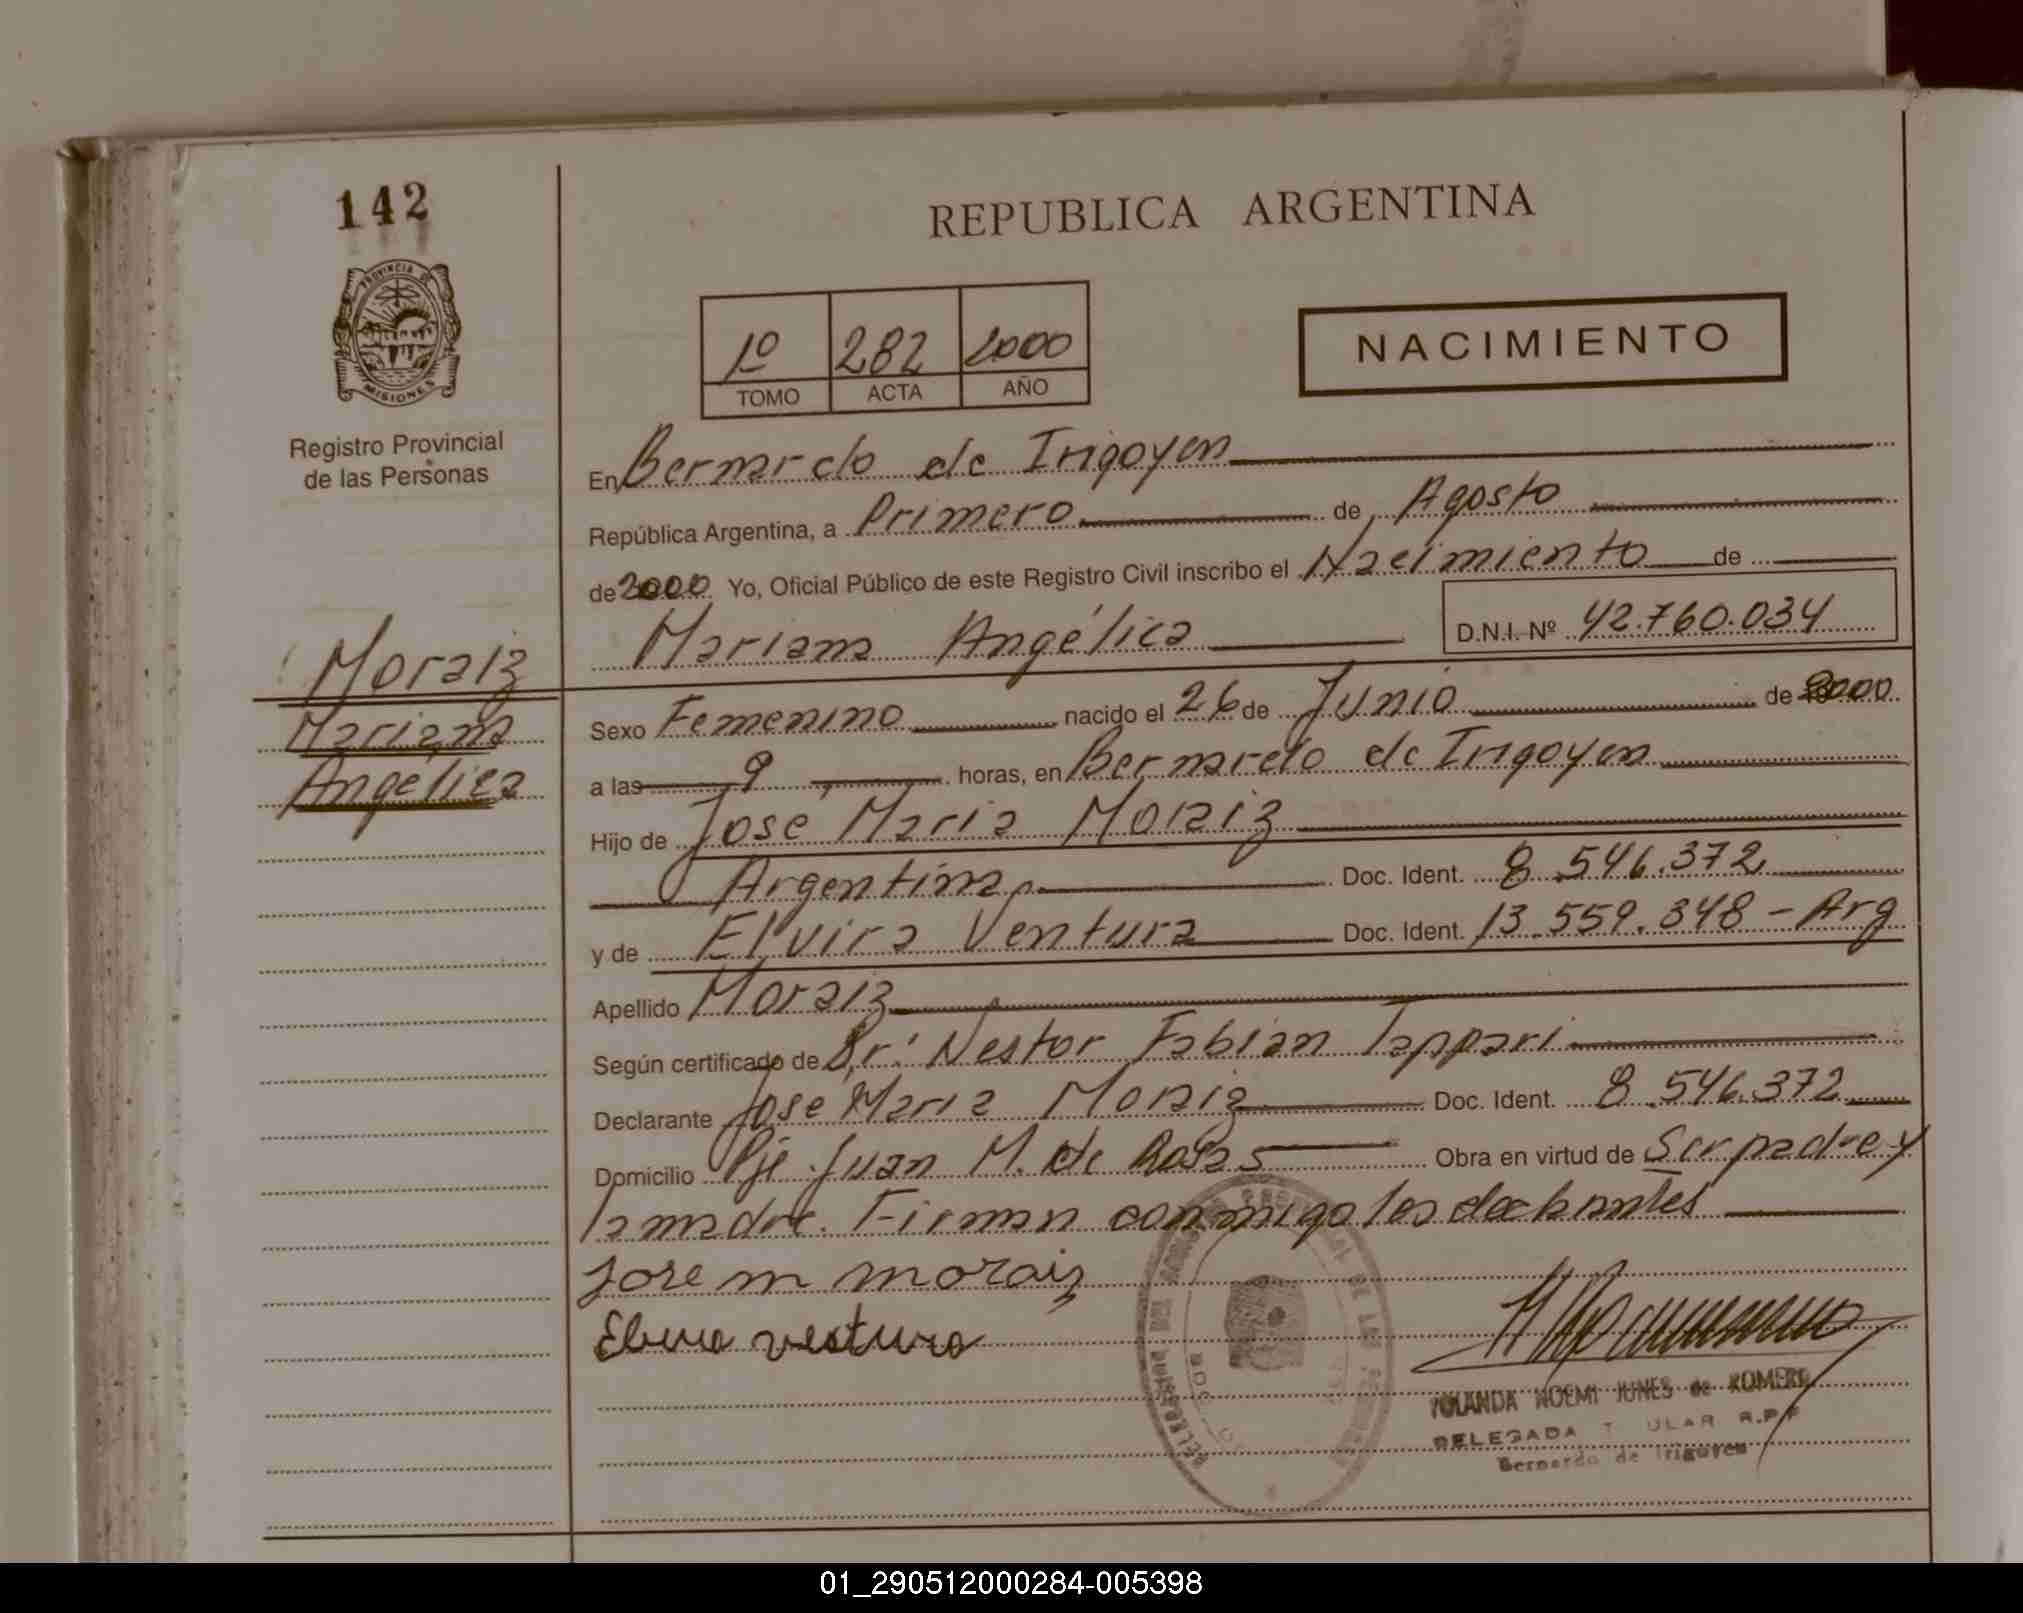 142
REPUBLICA ARGENTINA
PROVINCIA DE
MISIONES
Registro Provincial
de las Personas
1º 282 2000
TOMO ACTA AÑO
NACIMIENTO
En Bernardo de Irigoyen
República Argentina, a Primero de Agosto
de 2000 Yo, Oficial Público de este Registro Civil inscribo el Nacimiento de
Mariana Angélica D.N.I. Nº 42.760.034
Moraiz
Mariana
Angélica
Sexo Femenino nacido el 26 de Junio de 2000
a las 9 horas, en Bernardo de Irigoyen
Hijo de Jose Maria Moraiz
Argentina Doc. Ident. 8.546.372
y de Elvira Ventura Doc. Ident. 13.559.348 - Arg
Apellido Moraiz
Según certificado de Dr. Nestor Fabian Tappari
Declarante Jose Maria Moraiz Doc. Ident. 8.546.372
Domicilio Pje Juan M. de Rosas Obra en virtud de Ser padre y
la madre. Firman conmigo los declarantes
Jose m moraiz
Elvira ventura
YOLANDA NOEMI JUNES de ROMERO
DELEGADA R.P.P
Bernardo de Irigoyen
01_290512000284-005398